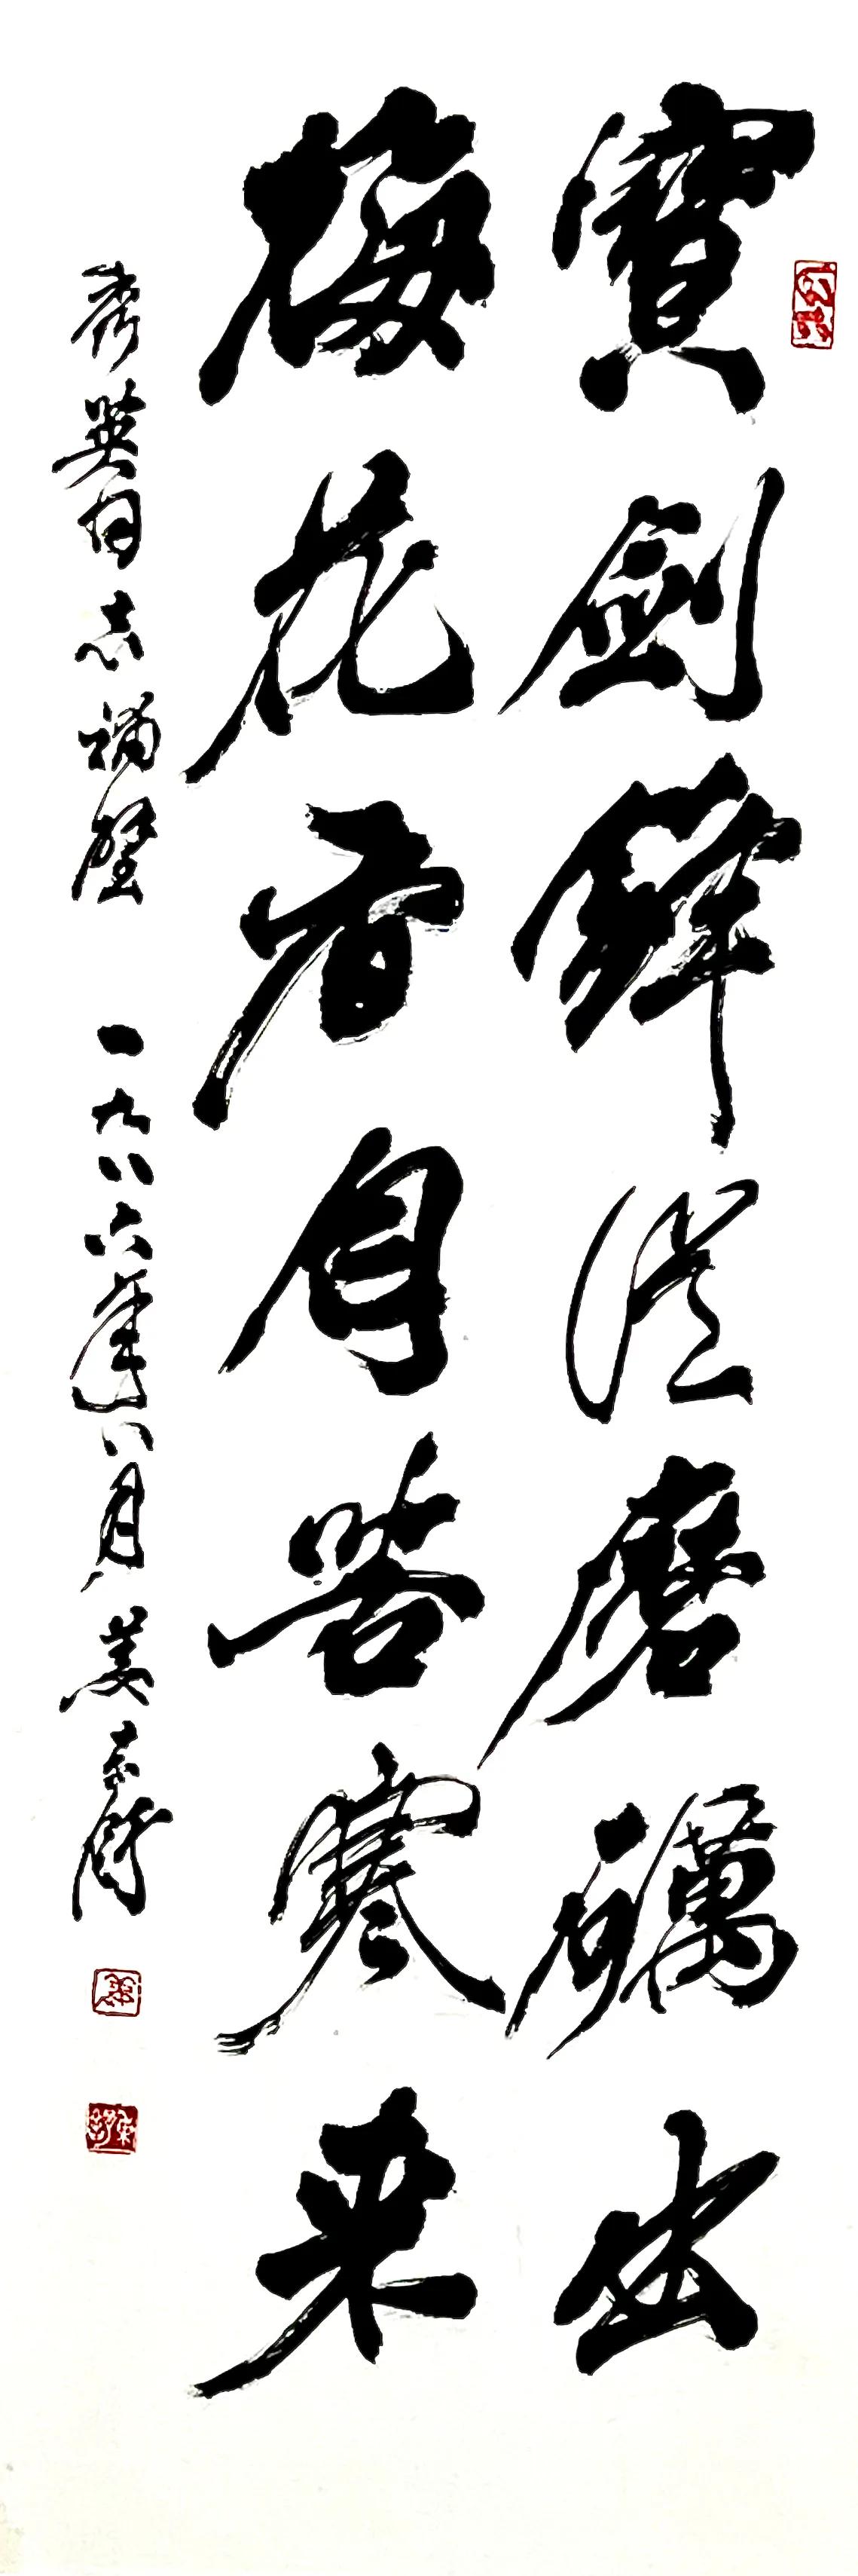 寶劍鋒從磨礪出
梅花香自苦寒来
秀英同志補壁 一九八六年八月 姜东舒